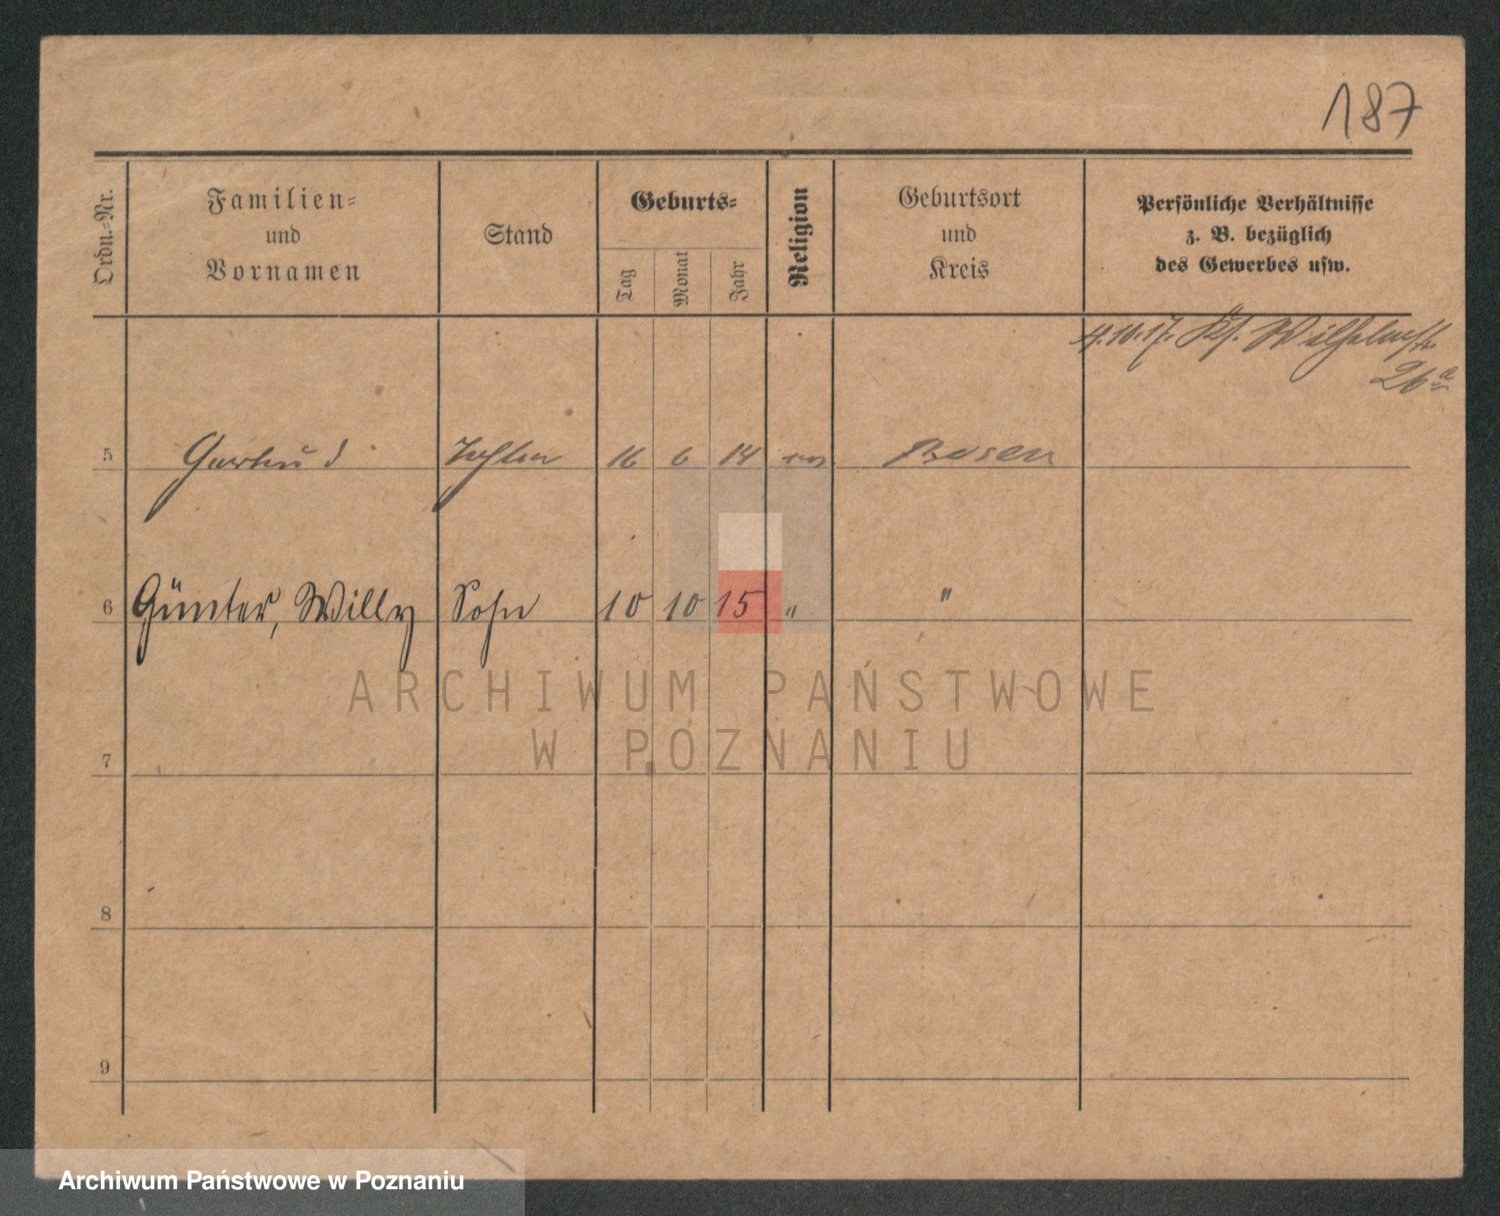 187
Ordn.-Nr.
Familien-
und
Vornamen
Stand
Geburts-
Tag
Monat
Jahr
Religion
Geburtsort
und
Kreis
Persönliche Verhältnisse
z. B. bezüglich
des Gewerbes usw.
4.10.17. Wilhelmstr
26a
5 Gertrud Tochter 16 6 14 Posen
6 Günter, Willy Sohn 10 10 15 " "
ARCHIWUM PAŃSTWOWE
W POZNANIU
7
8
9
Archiwum Państwowe w Poznaniu